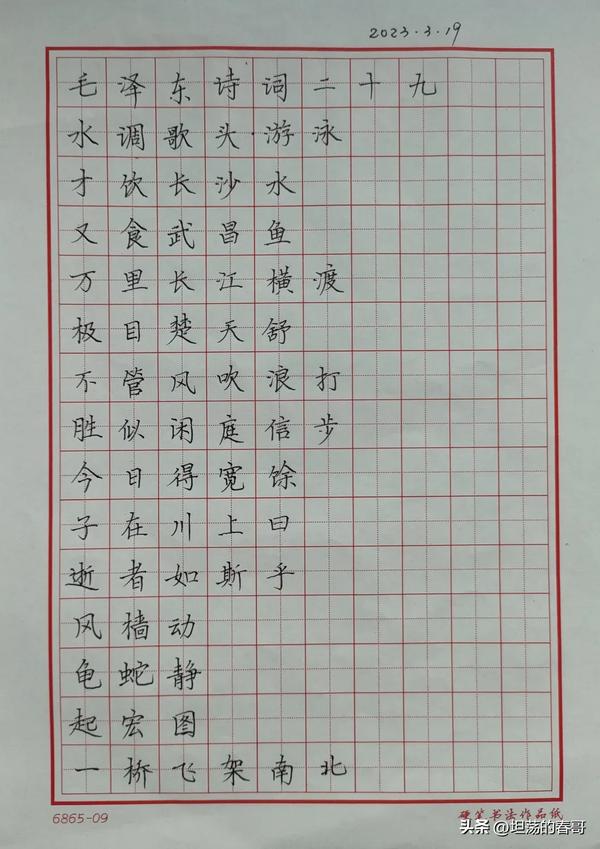 2023.3.19
毛泽东诗词二十九
水调歌头·游泳
才饮长沙水
又食武昌鱼
万里长江横渡
极目楚天舒
不管风吹浪打
胜似闲庭信步
今日得宽馀
子在川上曰
逝者如斯乎
风樯动
龟蛇静
起宏图
一桥飞架南北
6865-09 硬笔书法作品纸
头条 @坦荡的春哥